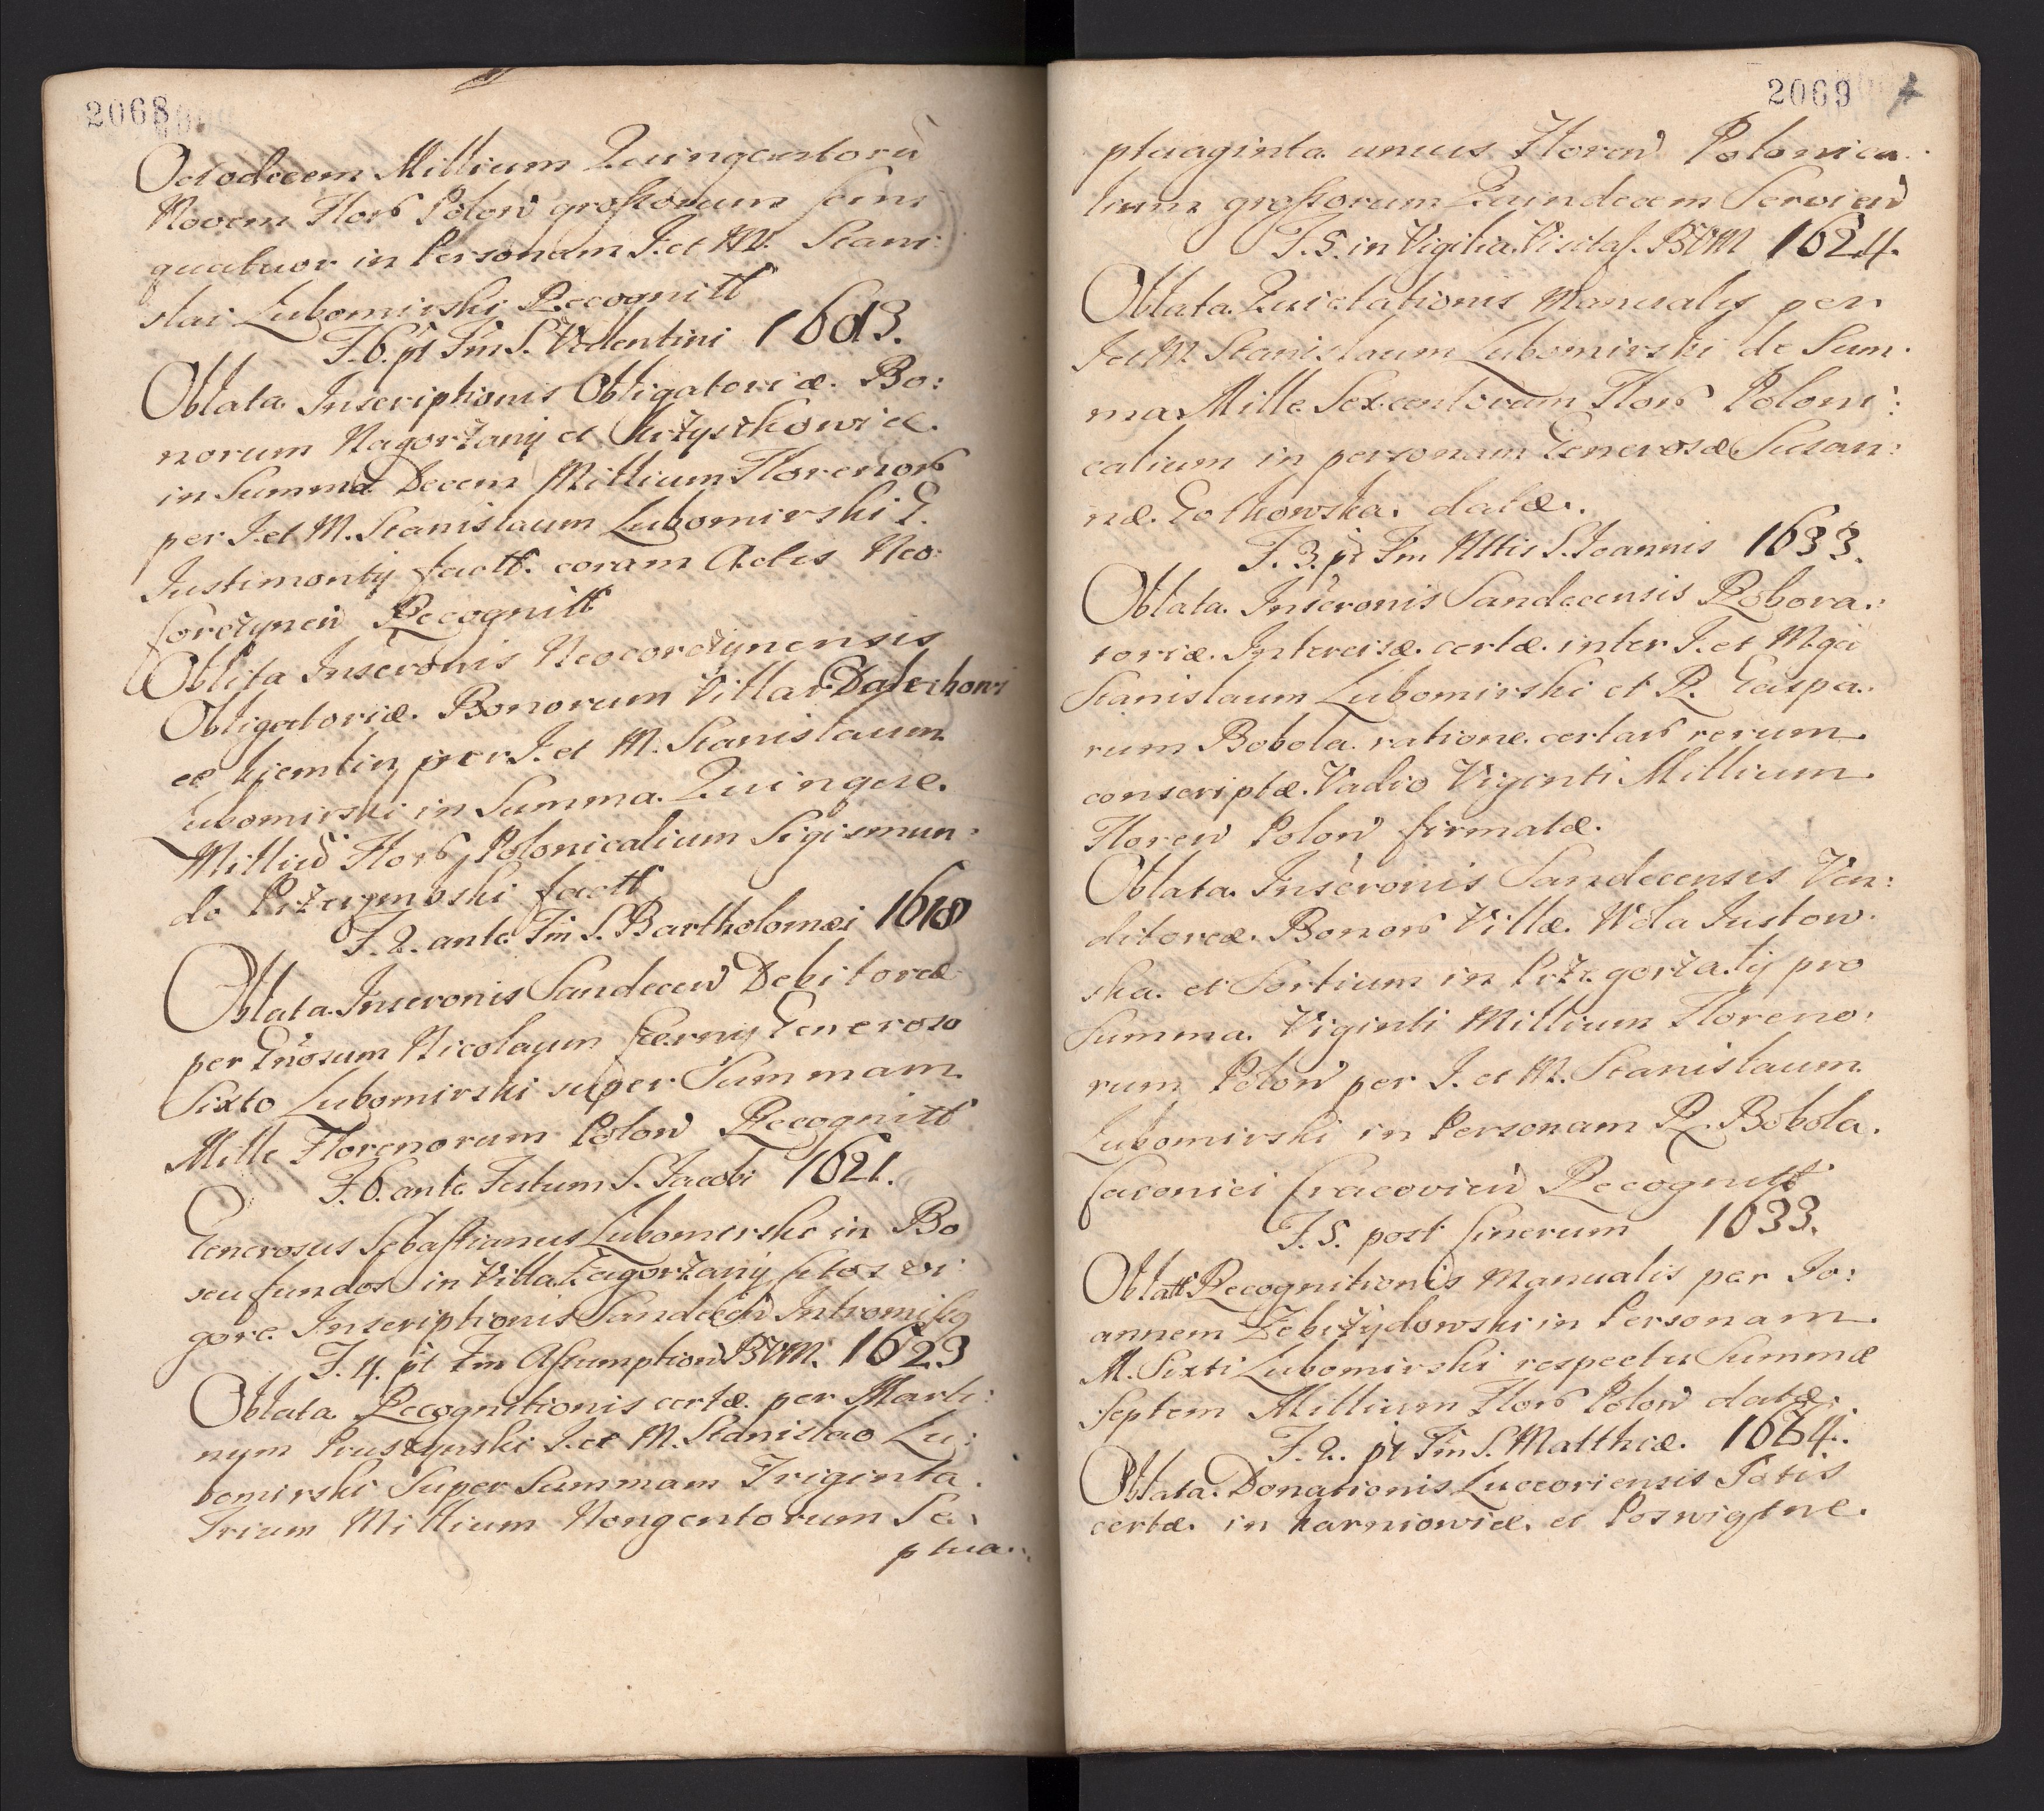 2068
Octodecem Millium Quingentorū
Novem Flor Polon grossorum sem
quatuor in Personam I. et M. Stani:
slai Lubomirski Recognitt
F. 6. pt Fm S. Valentini 1613.
Oblata Inscriptionis Obligatoriæ Bo:
norum Nagorżany et Krzyszkowice
in Summa Decem Millium Florenor
per I. et M. Stanislaum Lubomirski G.
Justimonty factt. coram Actis Neo
Corczynen Recognitt
Oblata Inscronis Neocorczynensis
Obligatoriæ Bonorum Villar
et per I. et M. Stanislaum
Lubomirski in Summa Quinque
Milliū Flor Polonicalium Sigismun:
do factt
F. 2. ante Fm S. Bartholomæi 1618
Oblata Inscronis Sandecen Debitoreæ
per Gnosum Nicolaum Czerny Generoso
Sixto Lubomirski super Summam
Mille Florenorum Polon Recognitt
F. 6. ante Festum S. Jacobi 1621.
Generosus Sebastianus Lubomirski in Bo
seu fundos in Villa Zagorżany sitos vi
gore Inscriptionis Sandecen Intromissg
F. 4. pt Fm Assumption BVM. 1623
Oblata Recognitionis certæ per Marti:
num Pruszynski I. et M. Stanislao Lu:
bomirski Super Summam Triginta
Trium Millium Nongentorum Se:
ptua:
2069
ptuaginta unius Floren Polonica
lium grossorum Quindecem Servien
F. 5. in Vigilia Visitat. BVM 1624.
Oblata Quietationis Manualis per
I et M Stanislaum Lubomirski de Sum.
ma Mille Sexcentorum Flor Poloni:
calium in personam Generosæ Susan:
næ Golkowska datæ.
F. 3. pt Fm Nttis S. Joannis 1633.
Oblata Inscronis Sandecensis Robora:
toriæ Intercisæ certæ inter I. et Mgcu
Stanislaum Lubomirski et R. Gaspa:
rum Bobola ratione certar rerum
conscriptæ Vadio Viginti Millium
Floren Polon firmatæ.
Oblata Inscronis Sandecensis Ven:
ditoreæ Bonor Villæ Wola Justow
ska et Sortium in Przegorzaly pro
Summa Viginti Millium Floreno:
rum Polon per I. et M. Stanislaum
Lubomirski in Personam R. Bobola
Canonici Cracovien Recognitt
F. 5. post Cinerum 1633.
Oblatt Recognitionis Manualis per Jo:
annem Zebrzydowski in Personam
M. Sixti Lubomirski respectu Summæ
Septem Millium Flor Polon datæ.
F. 2. pt Fm S. Matthiæ. 1634.
Oblata Donationis Luceoriensis Patis
certæ in Karniowice et